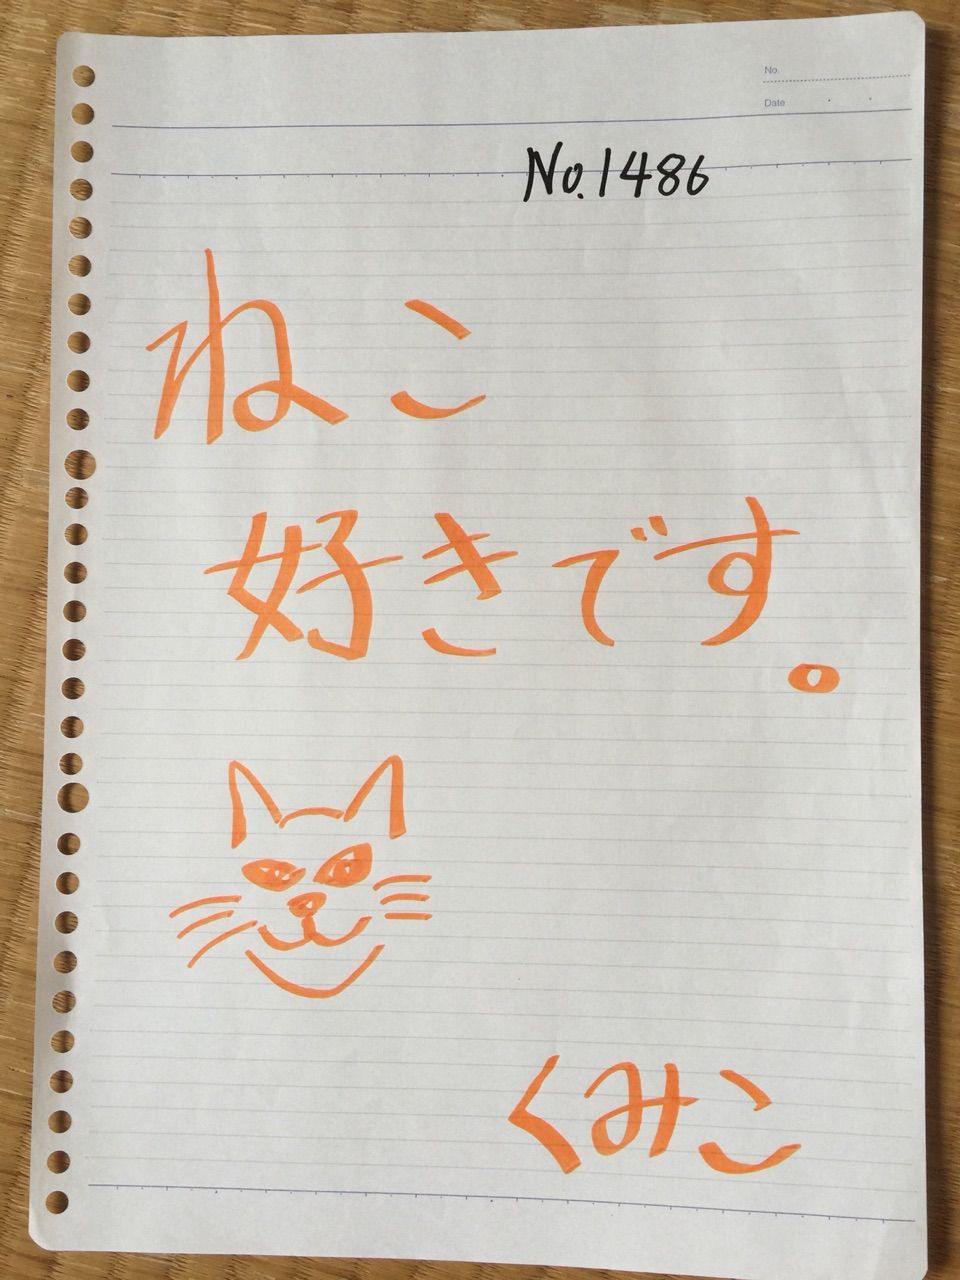 No.
Date
No.1486
ねこ
好きです。
くみこ